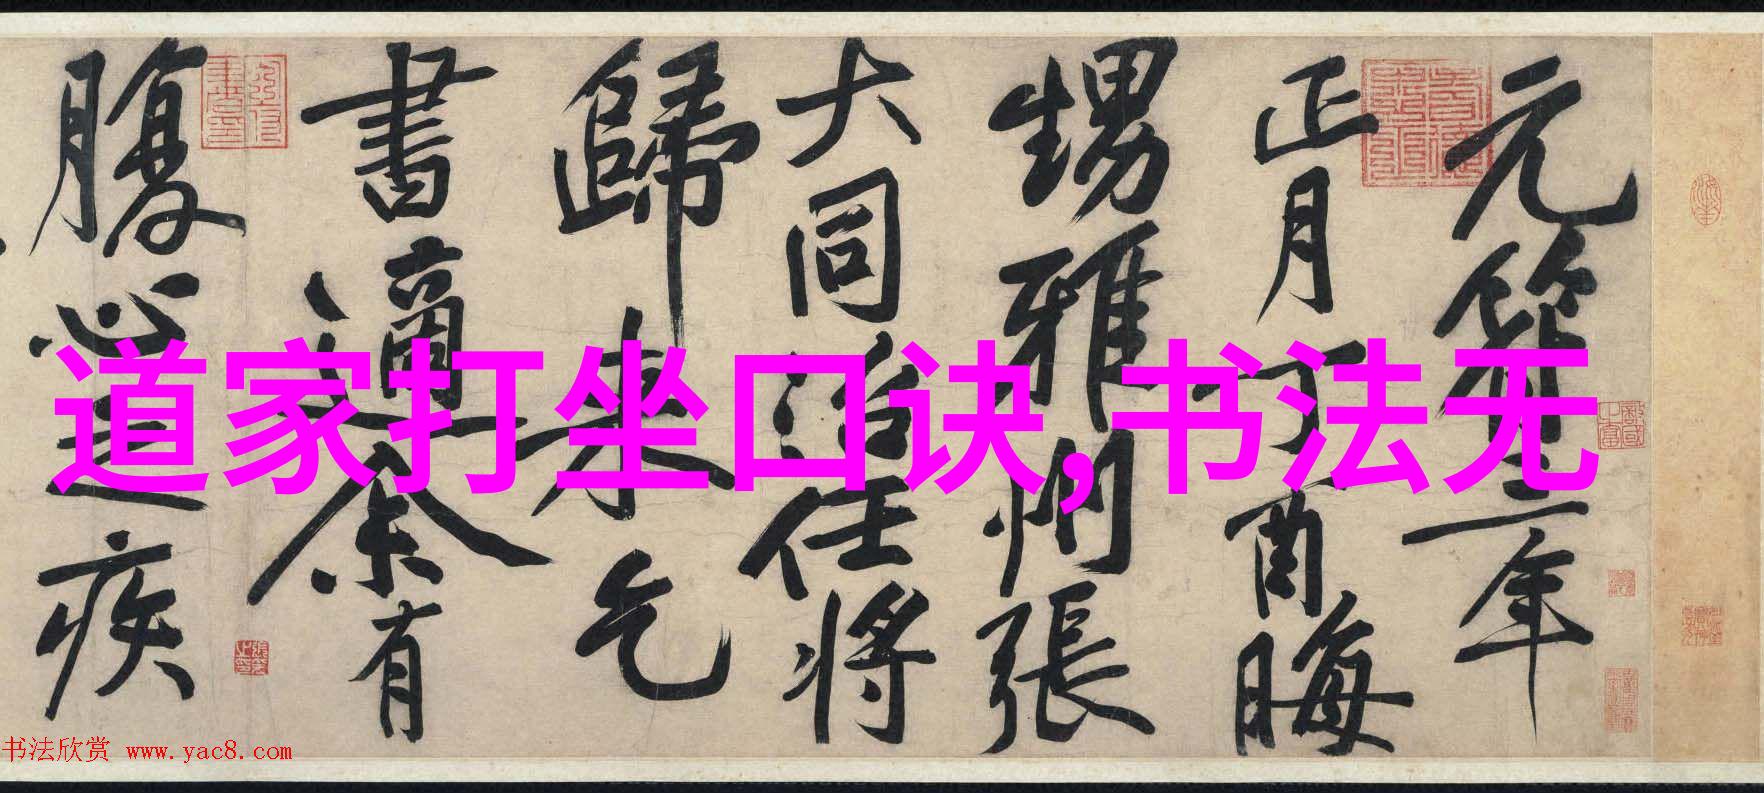 元符三年
正月丁酉晦
甥雅州張
大同治任將
歸來乞
書適余有
腹心之疾
道家打坐口诀,书法无
书法欣赏 www.yac8.com